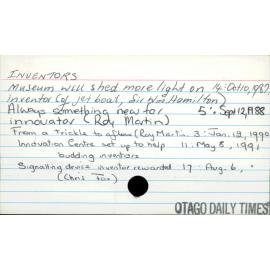 INVENTORS
Museum will shed more light on 14: Oct10, 1987
inventor (of jet boat, Sir Wm Hamilton)
Always something new for 5: Sept 12, 1988
innovator (Roy Martin)
From a Trickle to a flow (Roy Martin. 3: Jan. 12, 1990
Innovation Centre set up to help 11: May 8, 1991
budding inventors
Signalling device inventor rewarded 17: Aug. 6, "
(Chris Fox)
OTAGO DAILY TIMES